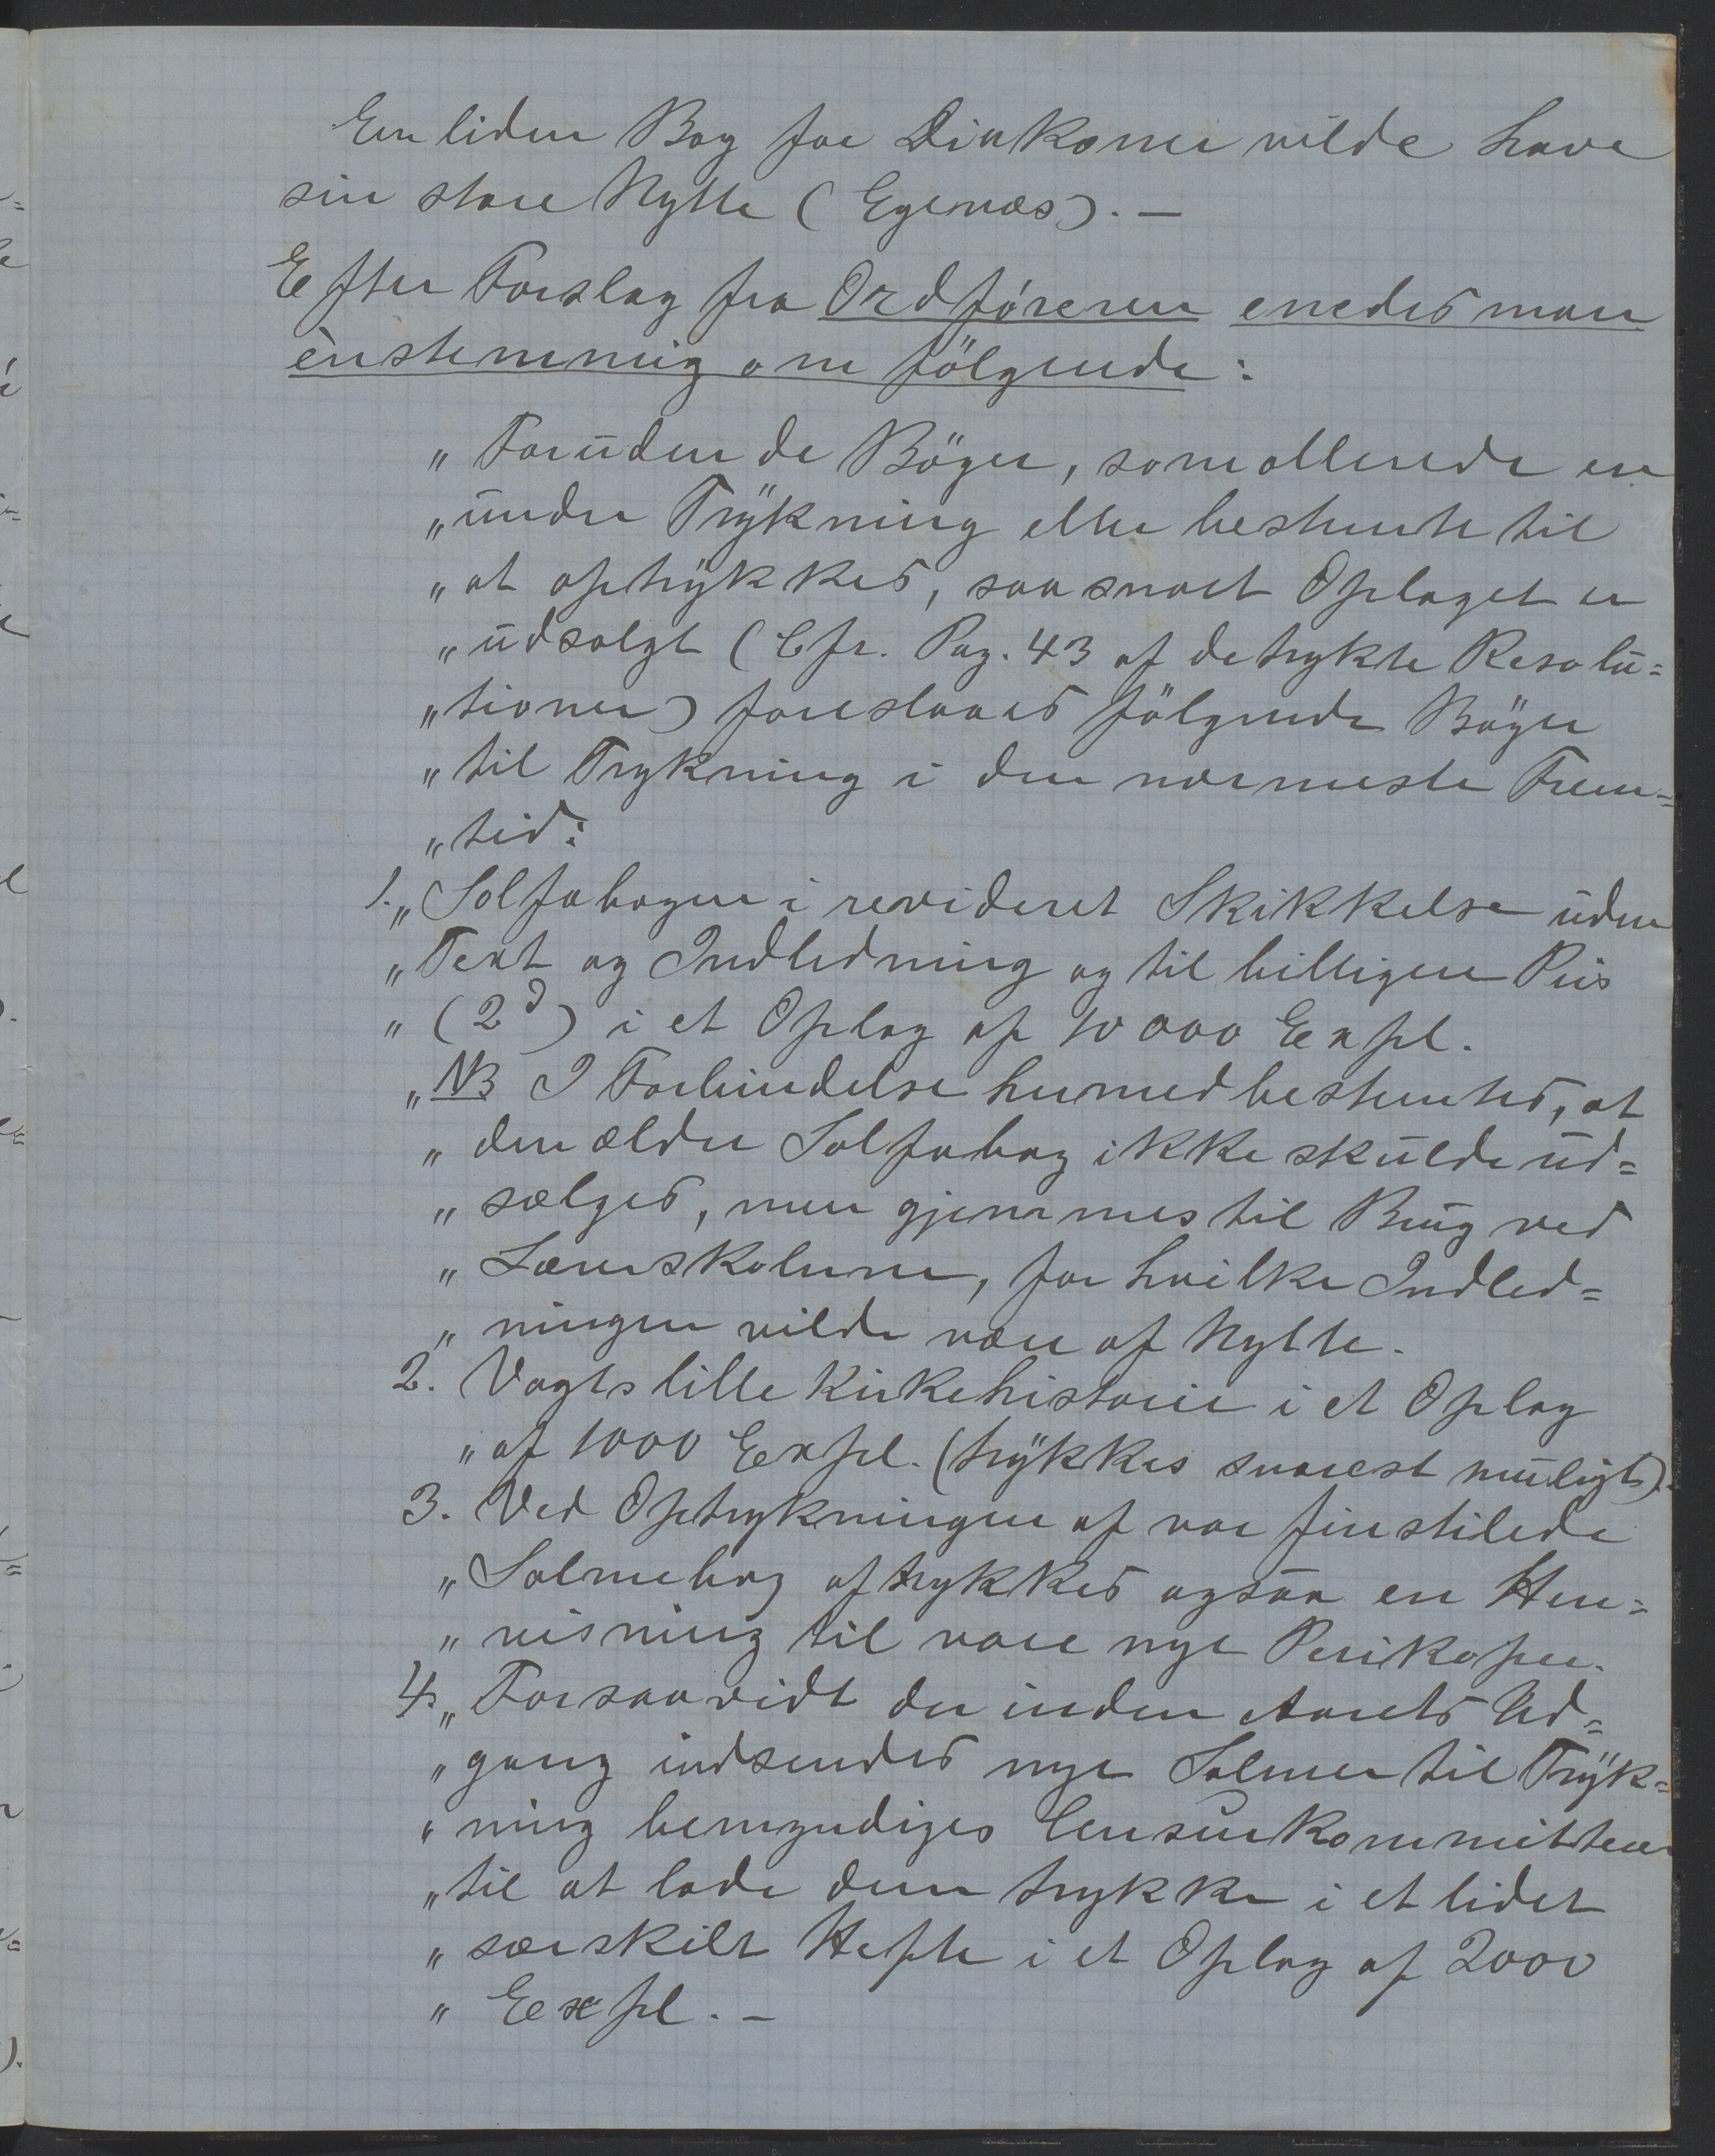 En liden Bog for Diakoner vilde have
sin store Nytte (Egenæs). —
Efter Forslag fra Ordføreren enedes man
ènstemmig om følgende:
„ Foruden de Böger, som allerede er
„ under Trykning eller bestemte til
„ at optrykkes, saasnart Oplaget er
„ udsolgt (Cfr. Pag. 43 af de trykte Resolu=
„ tioner) foreslaaes fölgende Böger
„ til Trykning i den nærmeste Frem=
„ tid:
1. „ Solfabogen i revideret Skikkelse uden
„ Text og Indledning og til billigere Pris
„ (2d) i et Oplag af 10000 Expl.
„ NB I Forbindelse hermed bestemtes, at
„ den ældre Solfabog ikke skulde ud=
„ sælges, men gjemmes til Brug ved
„ Lærerskolerne, for hvilke Indled=
„ ningen vilde være af Nytte.
2. Vogts lille Kirkehistorie i et Oplag
„ af 1000 Expl. (trykkes snarest muligt).
3. Ved Optrykningen af vor finstilede
„ Salmebog aftrykkes ogsaa en Hen=
„ visning til vore nye Perikoper.
4. „ Forsaavidt der inden Aarets Ud=
„ gang indsendes nye Salmer til Tryk=
„ ning bemyndiges Censurkommitteen
„ til at lade dem trykke i et lidet
„ særskilt Hefte i et Oplag af 2000
„ Expl. —